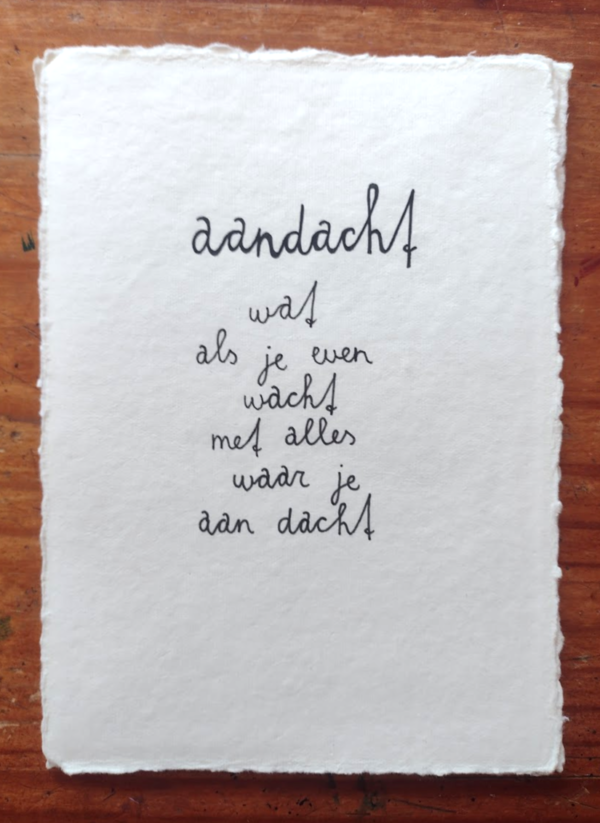 aandacht
wat
als je even
wacht
met alles
waar je
aan dacht